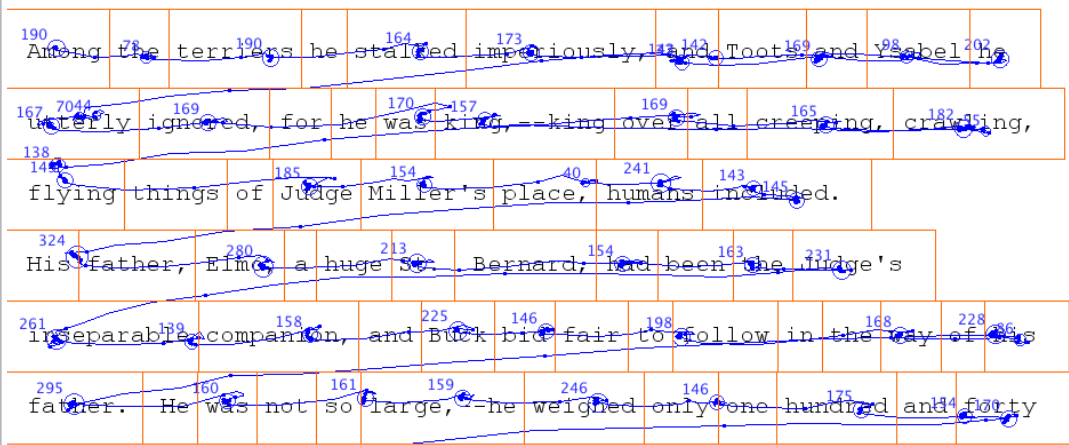 190 78 190 164 173 142 142 169 98 202
Among the terriers he stalked imperiously, and Toots and Ysabel he
167 7044 169 170 157 169 165 182
utterly ignored, for he was king,--king over all creeping, crawling,
138
185 154 40 241 143 145
flying things of Judge Miller's place, humans included.
324 280 213 154 163 231
His father, Elmo, a huge St. Bernard, had been the Judge's
261 139 158 225 146 198 168 228 86
inseparable companion, and Buck bid fair to follow in the way of his
295 160 161 159 246 146 175 154 170
father. He was not so large,--he weighed only one hundred and forty